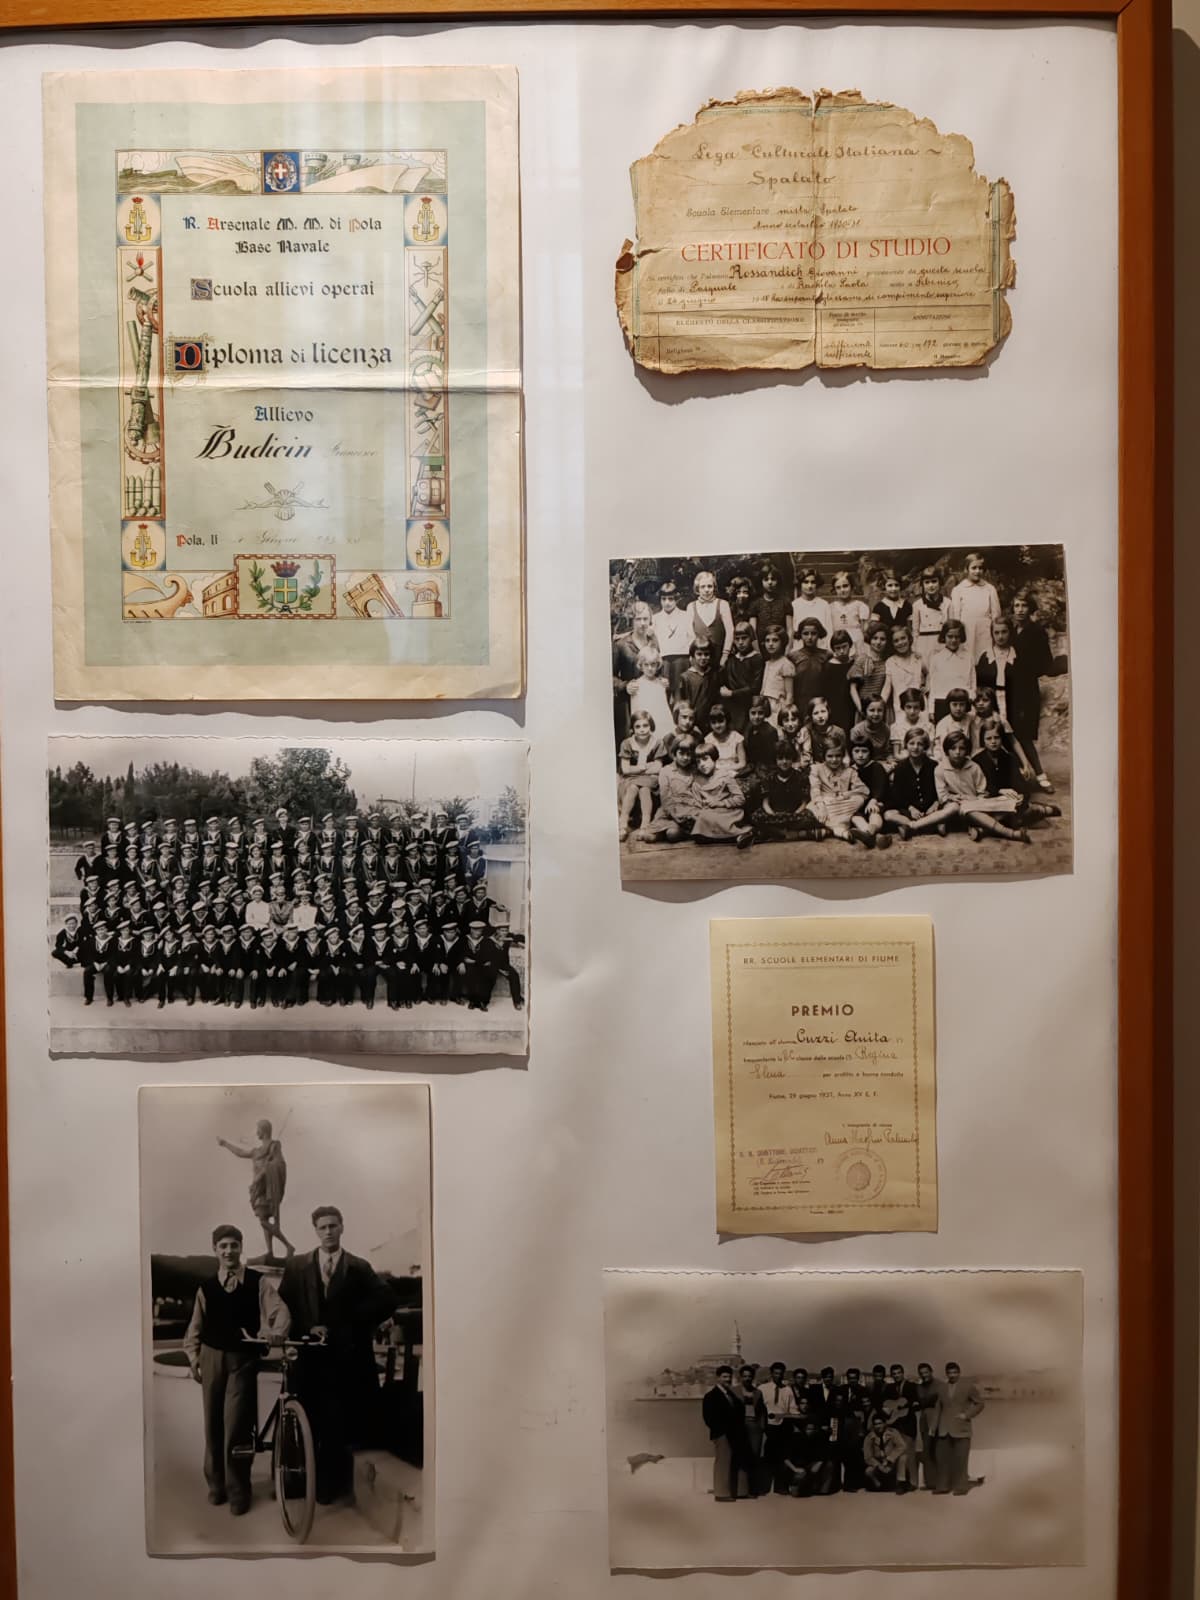 R. Arsenale M. M. di Pola
Base Navale
Scuola allievi operai
Diploma di licenza
Allievo
Budicin Francesco
Pola, li
Lega Culturale Italiana
Spalato
Scuola Elementare mista Spalato
Anno scolastico 1930-31
CERTIFICATO DI STUDIO
Si certifica che l'alunno Rossandich Giovanni proveniente da questa scuola
figlio di Pasquale e di Rachela Paola nato a Sibenico
il 24 giugno ha superato gli esami di compimento superiore
ELEMENTO DELLA CLASSIFICAZIONE
ANNOTAZIONI
Religione
sufficiente
sufficiente
RR. SCUOLE ELEMENTARI DI FIUME
PREMIO
rilasciato all'alunna Cuzzi Anita
frequentante la classe della scuola Regina
Elena per profitto e buona condotta
Fiume, 29 giugno 1937, Anno XV E. F.
L'insegnante di classe
IL R. DIRETTORE DIDATTICO